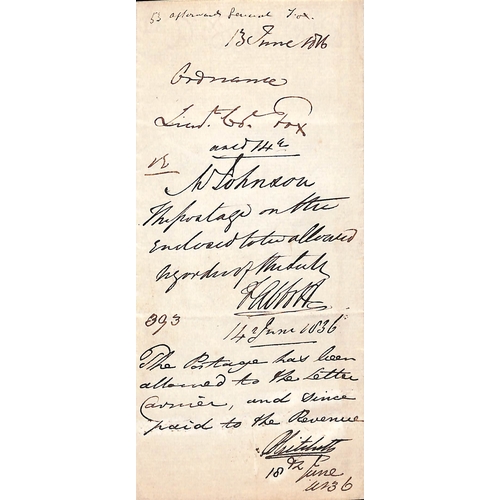 53 afterwards General Fox.
13 June 1836
Ordnance
Lieut. Col. Fox
ansd 14th
Mr Johnson
The postage on the
enclosed to be allowed
by order of the
F Abbott
393
14 June 1836
The Postage has been
allowed to the Letter
Carrier, and since
paid to the Revenue
18th June
1836